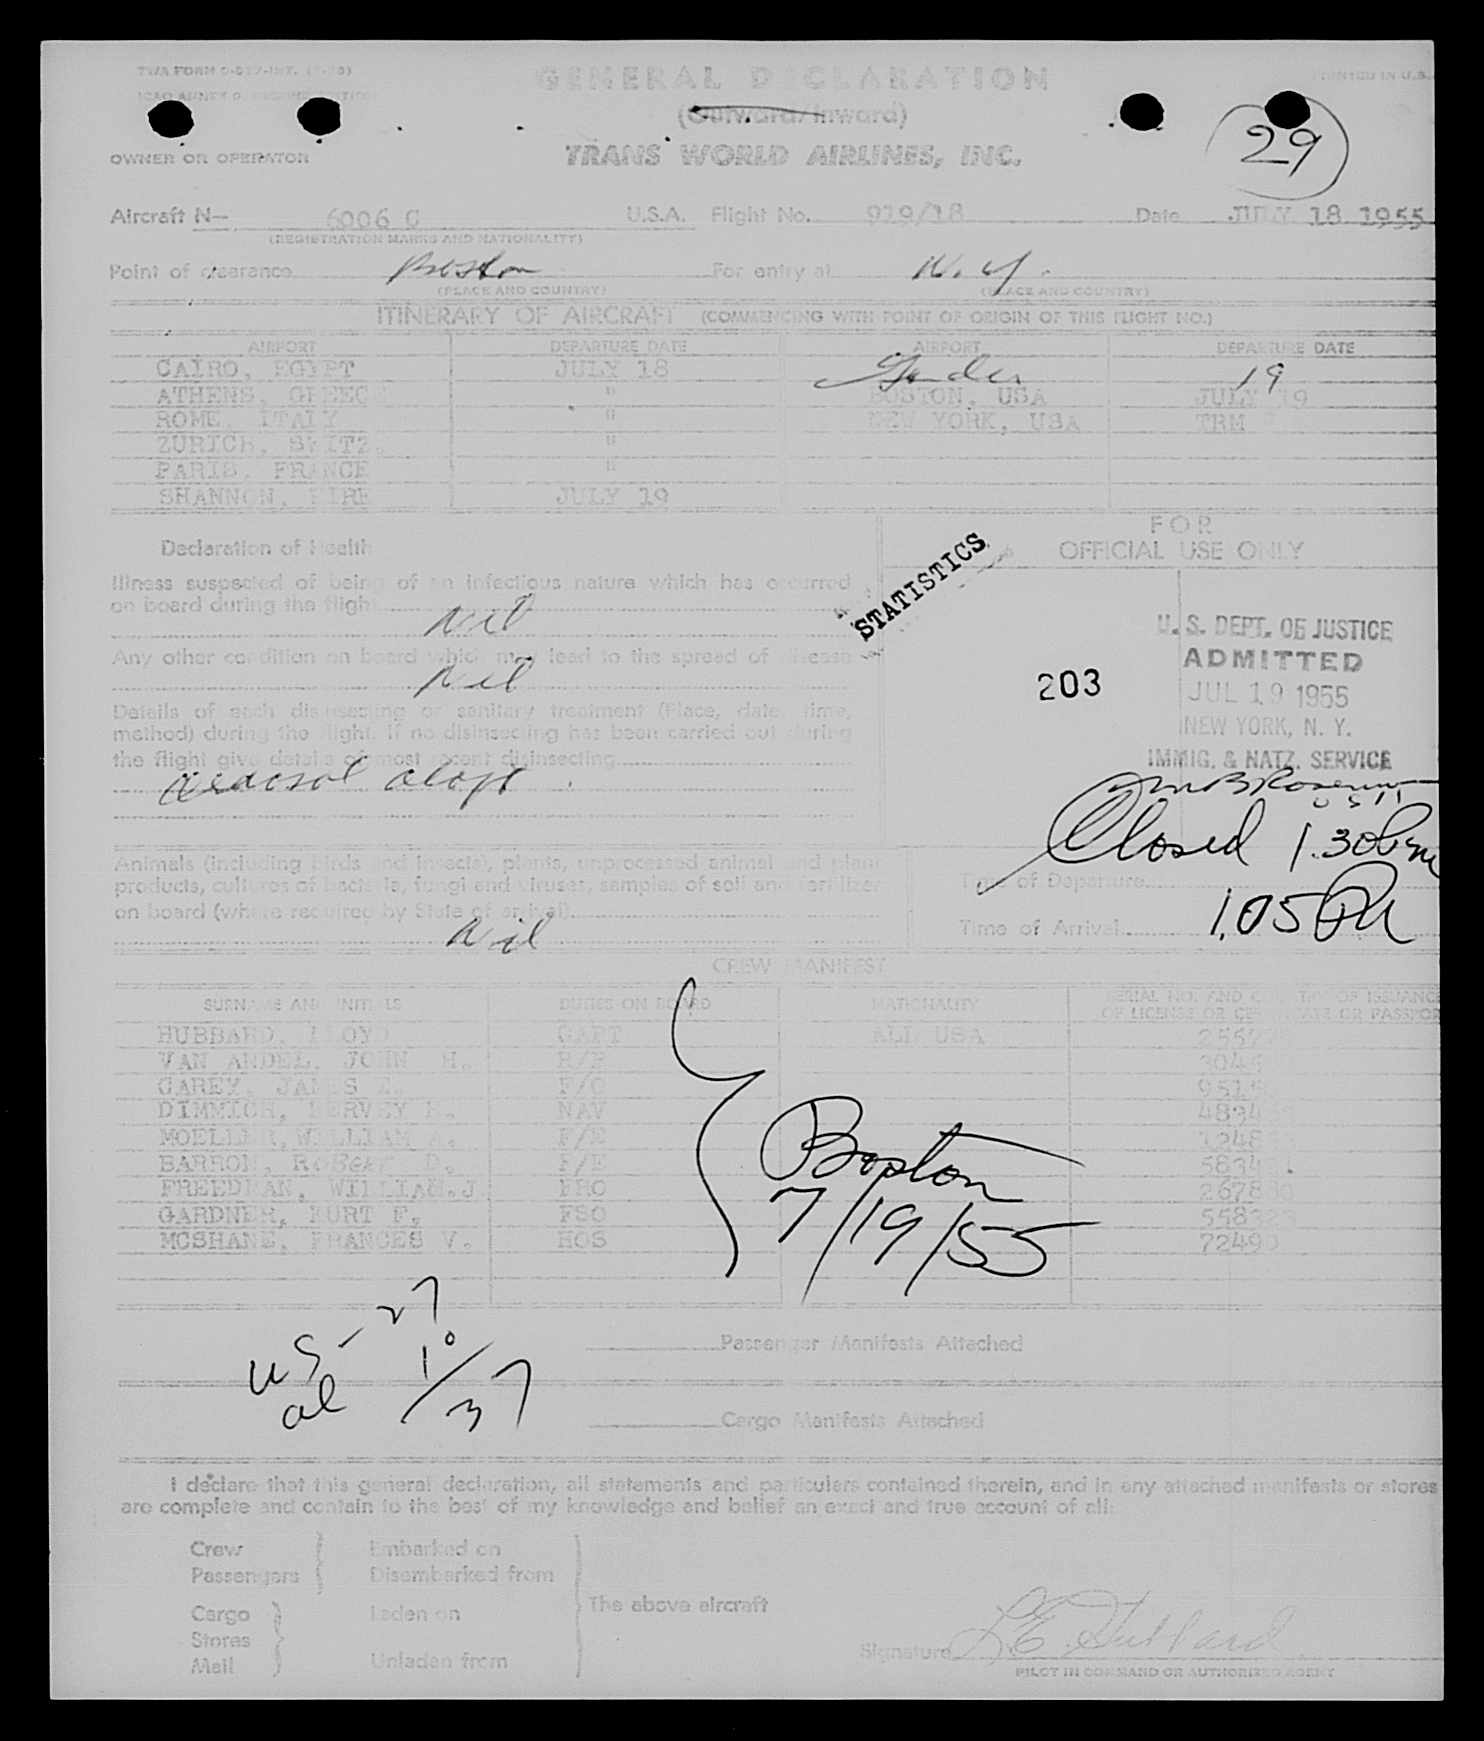 GENERAL DECLARATION
(Outward/Inward)
29
OWNER OR OPERATOR TRANS WORLD AIRLINES, INC.
Aircraft N— 6006 C U.S.A. Flight No. 919/18 Date JULY 18 1955
(REGISTRATION MARKS AND NATIONALITY)
Point of clearance Boston For entry at N. Y.
(PLACE AND COUNTRY) (PLACE AND COUNTRY)
ITINERARY OF AIRCRAFT (COMMENCING WITH POINT OF ORIGIN OF THIS FLIGHT NO.)
AIRPORT DEPARTURE DATE AIRPORT DEPARTURE DATE
CAIRO, EGYPT JULY 18 Gander 19
ATHENS, GREECE " BOSTON, USA JULY 19
ROME, ITALY " NEW YORK, USA TRM
ZURICH, SWITZ. "
PARIS, FRANCE "
SHANNON, EIRE JULY 19
FOR
OFFICIAL USE ONLY
Declaration of Health
Illness suspected of being of an infectious nature which has occurred
on board during the flight
Nil
Any other condition on board which may lead to the spread of disease
Nil
Details of each disinsecting or sanitary treatment (Place, date, time,
method) during the flight. If no disinsecting has been carried out during
the flight give details of most recent disinsecting
aerosol
STATISTICS
203
U. S. DEPT. OF JUSTICE
ADMITTED
JUL 19 1955
NEW YORK, N. Y.
IMMIG. & NATZ. SERVICE
Closed 1.30 Pm
Animals (including birds and insects), plants, unprocessed animal and plant
products, cultures of bacteria, fungi and viruses, samples of soil and fertilizer
on board (where required by State of arrival)
Nil
Time of Departure
Time of Arrival 1.05 PM
CREW MANIFEST
SURNAME AND INITIALS DUTIES ON BOARD NATIONALITY SERIAL NO. AND COUNTRY OF ISSUANCE
OF LICENSE OR CERTIFICATE OR PASSPORT
HUBBARD, LLOYD CAPT ALL USA
VAN ANDEL, JOHN H.
GAREY, JAMES E. F/O
DIMMICH, HERVEY NAV
MOELLER, WILLIAM A. F/E
BARRON, ROBERT D. F/E
FREEDMAN, WILLIAM.J FRO
GARDNER, KURT F. FSO
MCSHANE, FRANCES V. HOS
Boston
7/19/55
US - 27
al 10
/37
Passenger Manifests Attached
Cargo Manifests Attached
I declare that this general declaration, all statements and particulars contained therein, and in any attached manifests or stores
are complete and contain to the best of my knowledge and belief an exact and true account of all:
Crew Embarked on
Passengers Disembarked from
Cargo Laden on The above aircraft
Stores
Mail Unladen from
Signature L.E. Hubbard
PILOT IN COMMAND OR AUTHORIZED AGENT